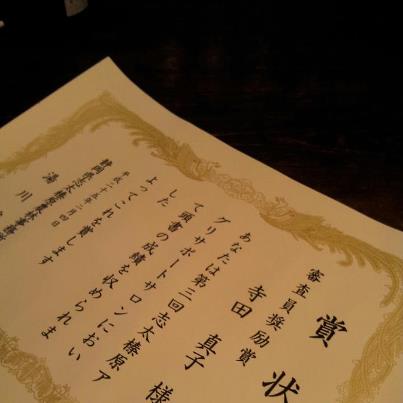 賞状
審査員奨励賞
寺田 真子 様
あなたは第三回志太榛原ア
グリサポートサロンにおい
て頭書の成績を収められま
した
よってこれを賞します
平成二十三年二月四日
静岡県志太榛原農林事務所
湯川